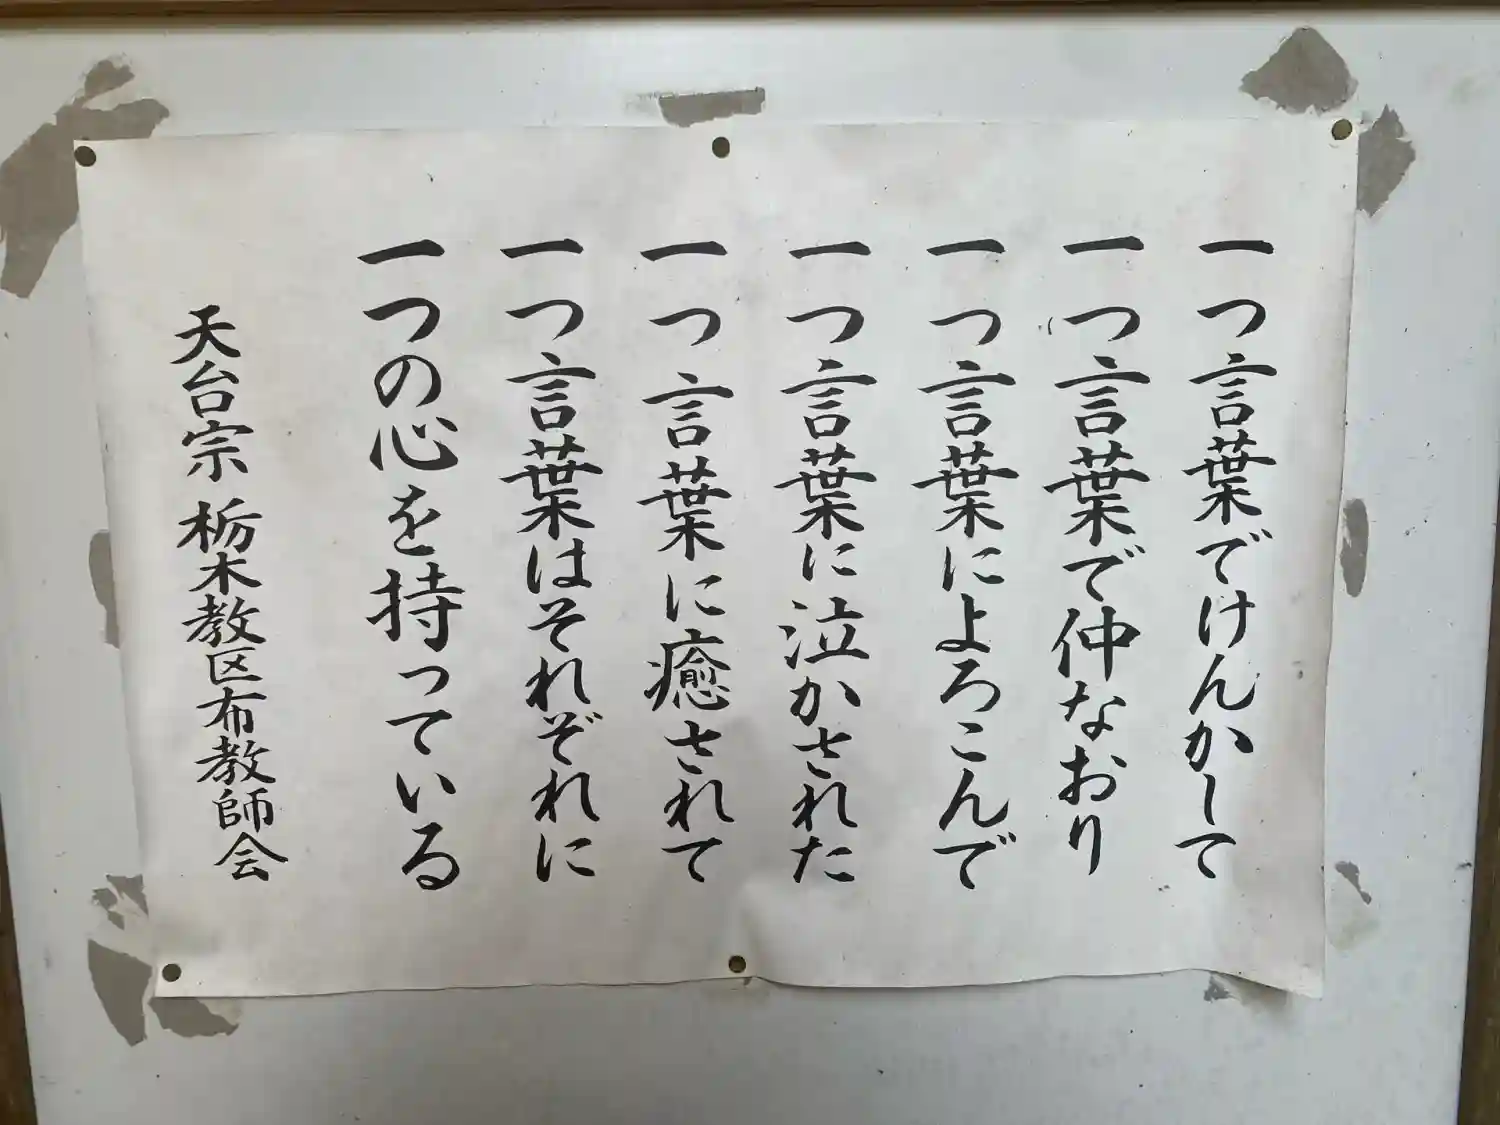 一つ言葉でけんかして
一つ言葉で仲なおり
一つ言葉によろこんで
一つ言葉に泣かされた
一つ言葉に癒されて
一つ言葉はそれぞれに
一つの心を持っている
天台宗 栃木教区布教師会